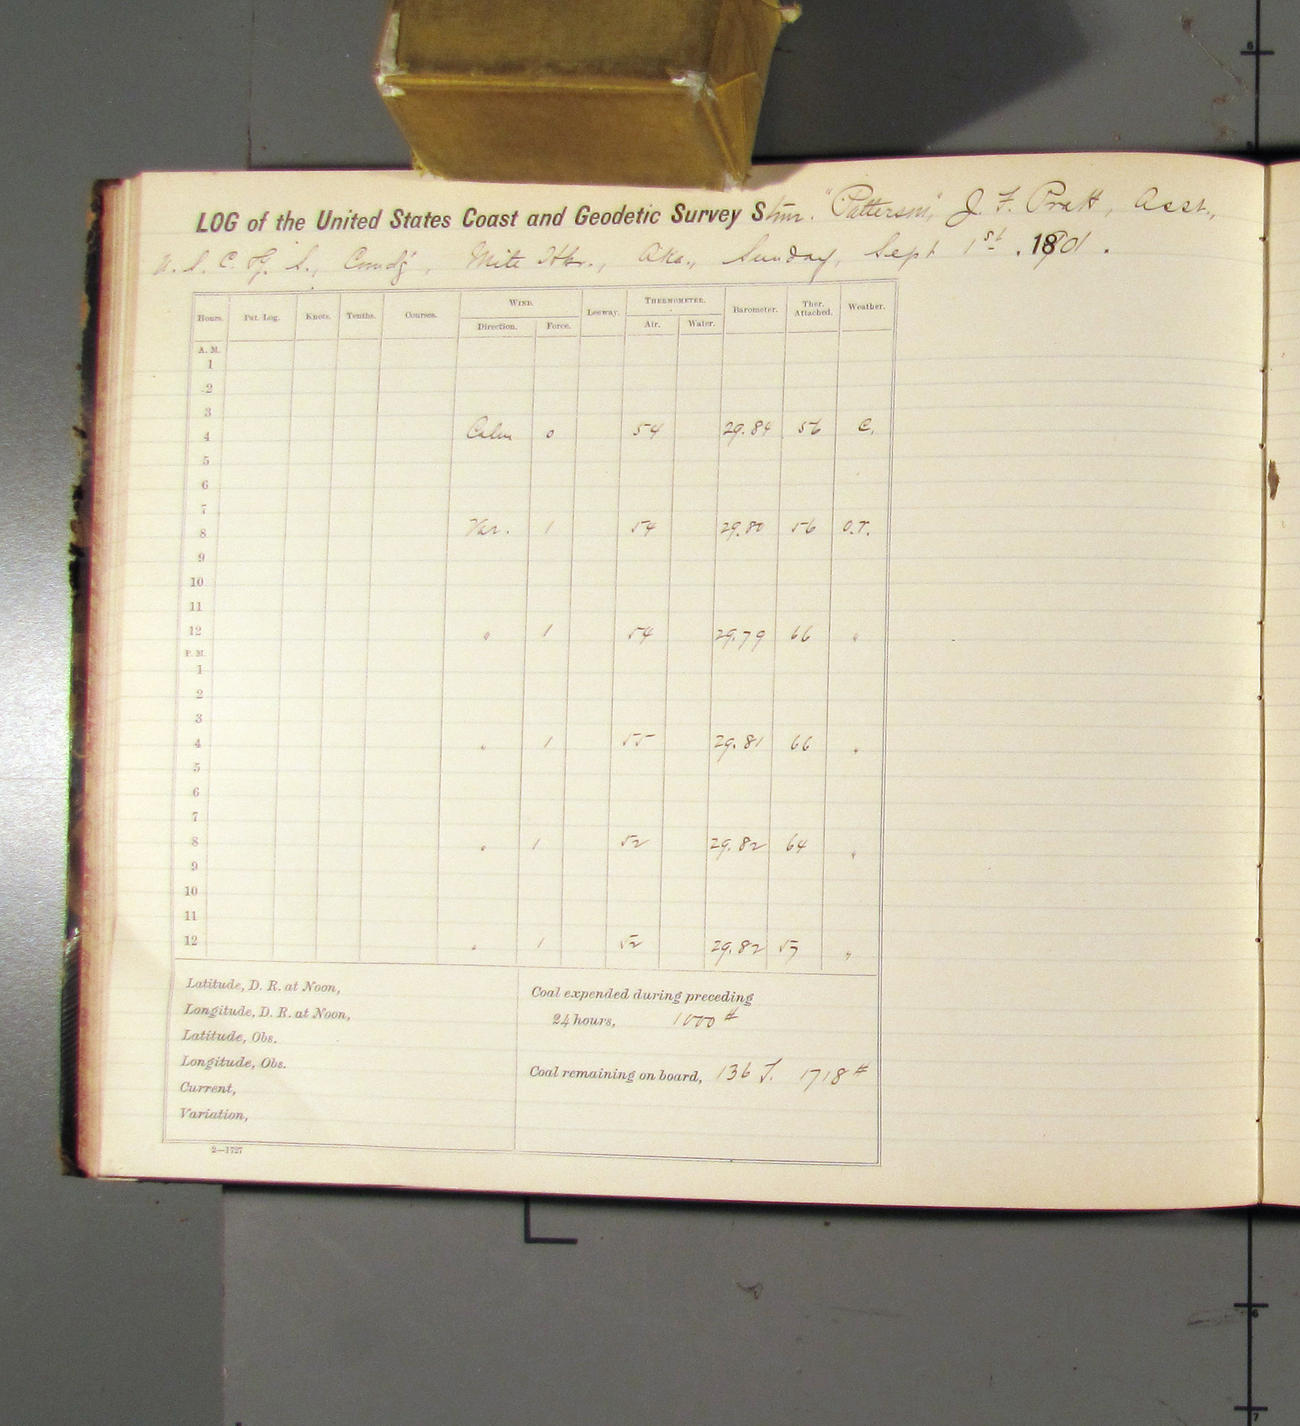 LOG of the United States Coast and Geodetic Survey Stmr. "Patterson," J. F. Pratt, Asst.,
U. S. C. & G. S., Comdg., Mite Hbr., Aka., Sunday, Sept 1st. 1901.
Hours. Pat. Log. Knots. Tenths. Courses. WIND. Direction. Force. Leeway. THERMOMETER. Air. Water. Barometer. Ther. Attached. Weather.
A. M.
1
2
3
4 Calm 0 54 29.84 56 C.
5
6
7
8 Var. 1 54 29.80 56 O.r.
9
10
11
12 " 1 54 29.79 66 "
P. M.
1
2
3
4 " 1 55 29.81 66 "
5
6
7
8 " 1 52 29.82 64 "
9
10
11
12 " 1 52 29.82 57 "
Latitude, D. R. at Noon,
Longitude, D. R. at Noon,
Latitude, Obs.
Longitude, Obs.
Current,
Variation,
Coal expended during preceding
24 hours, 1000 #
Coal remaining on board, 136 T. 1718 #
2—1727
6
6
7